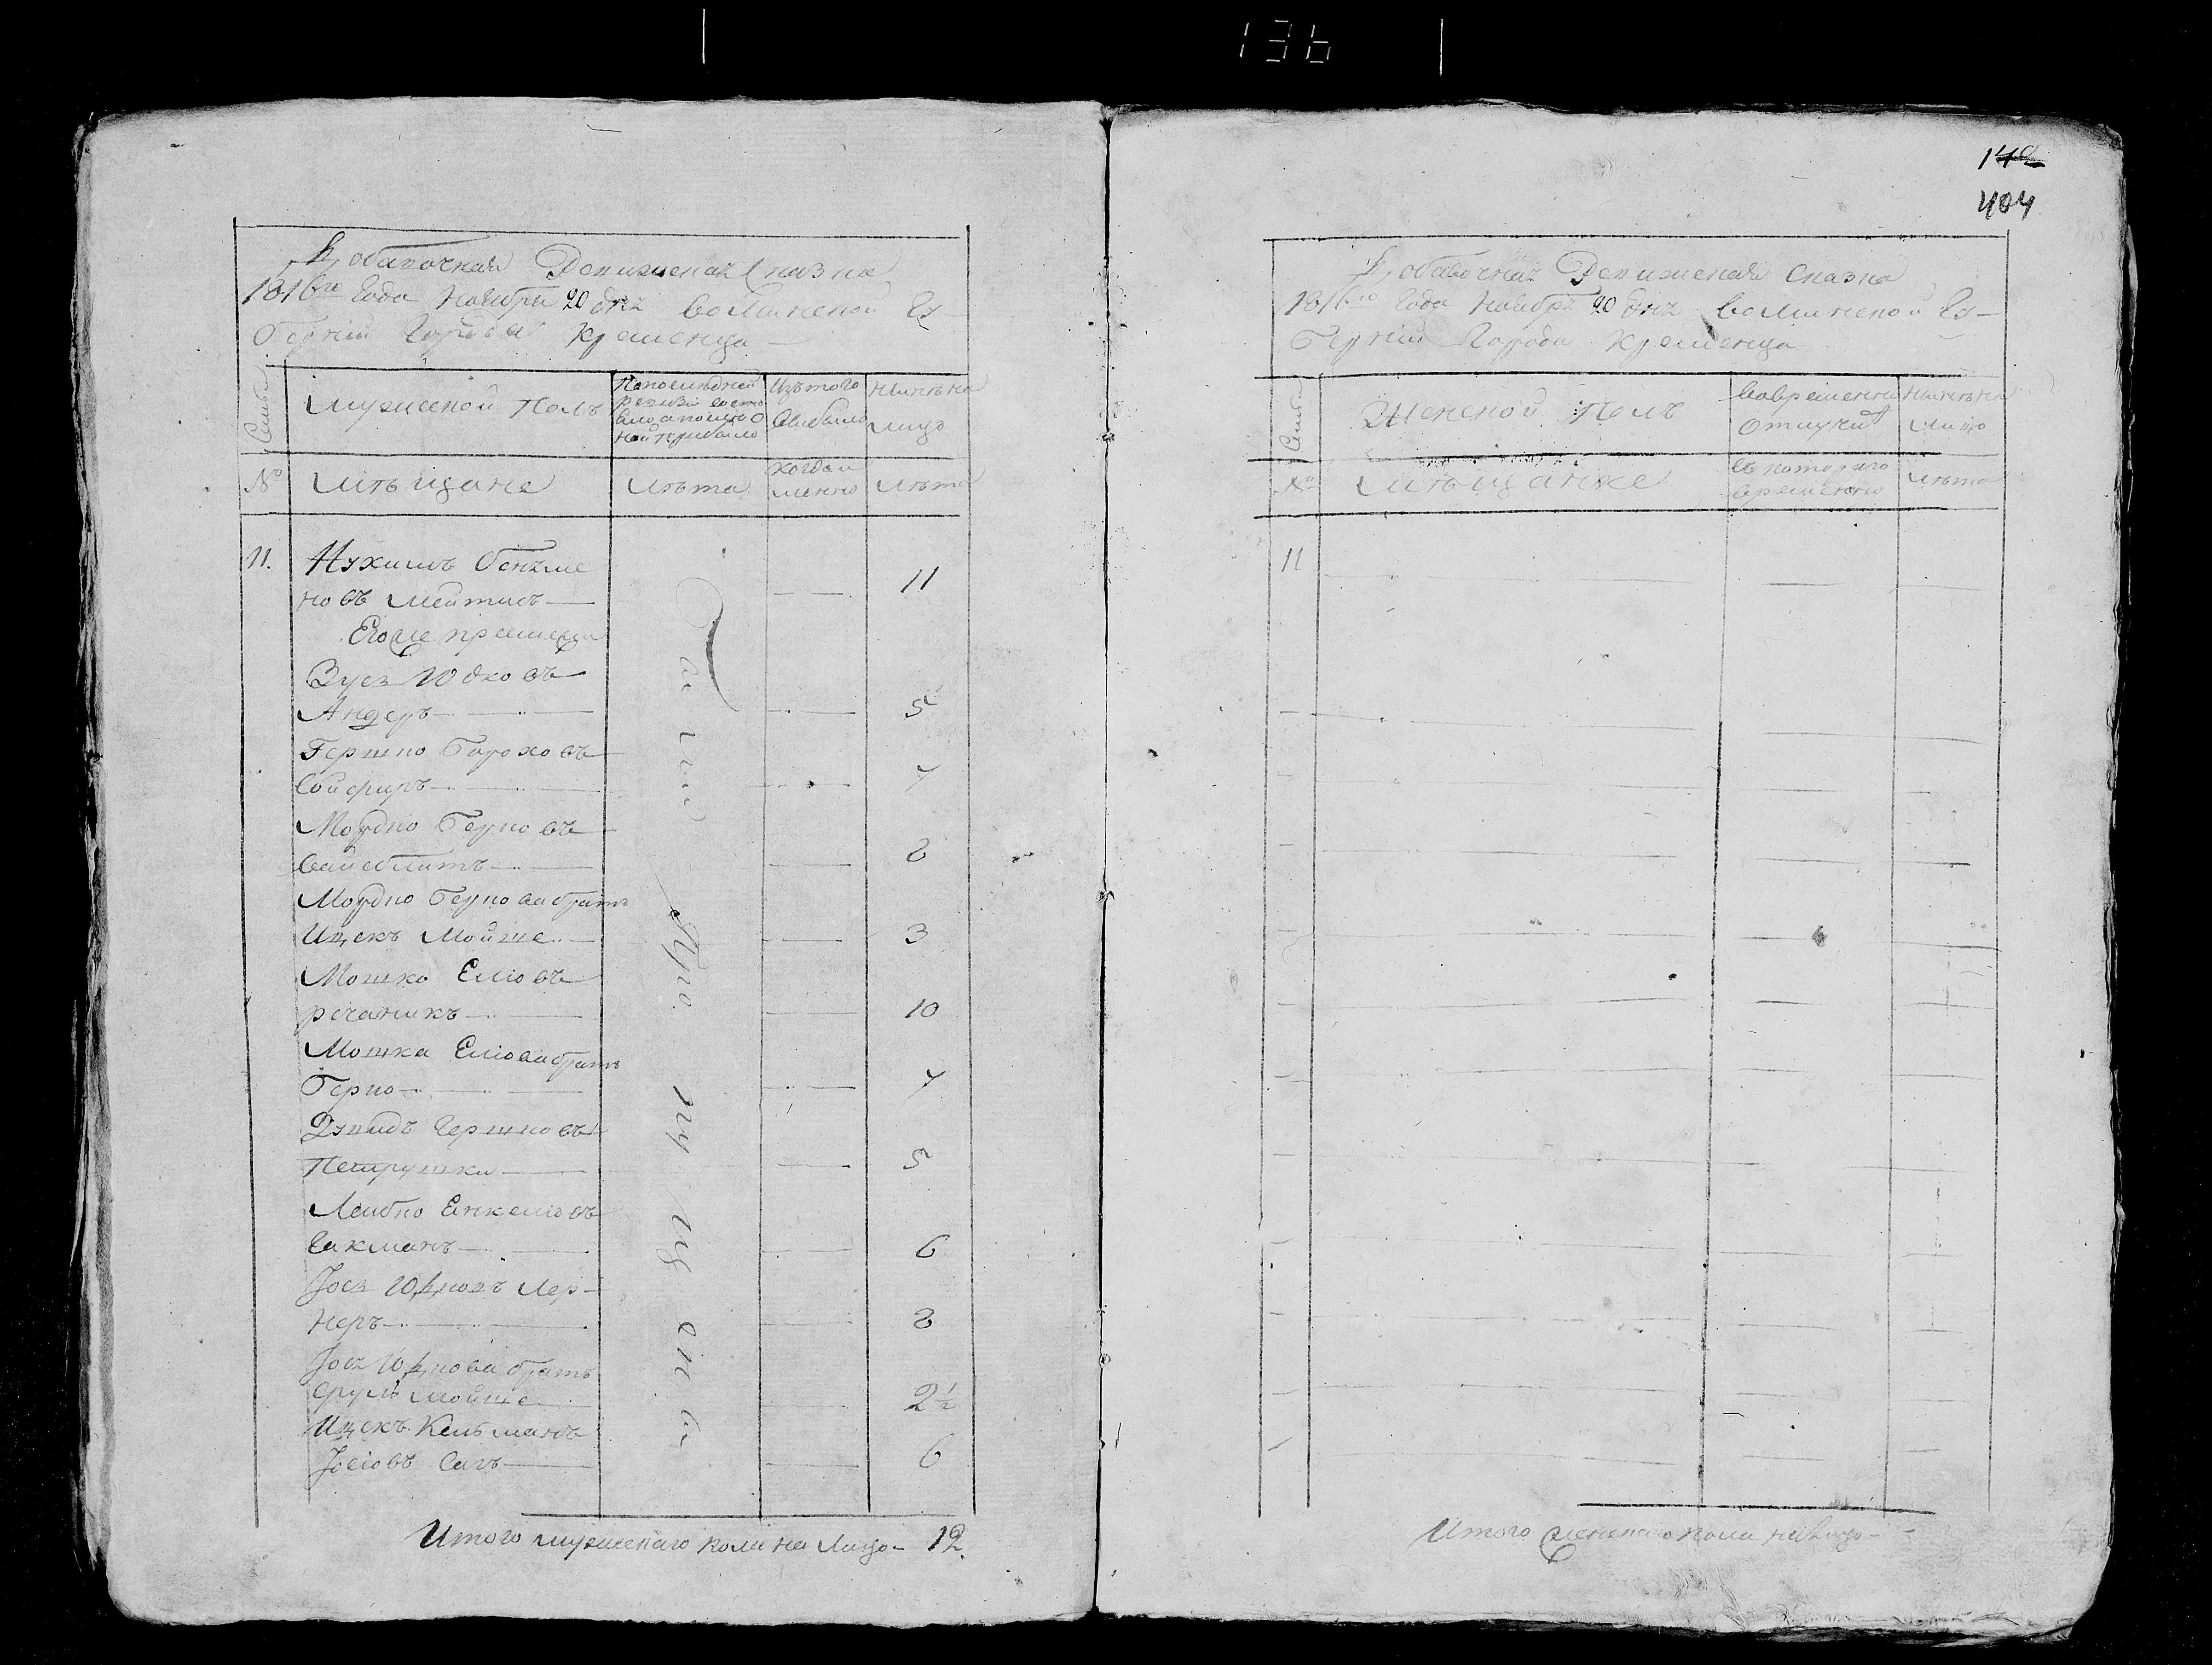 136
Добавочная Ревижская Сказка
1816го Года Ноября 20 дня Волынской Гу-
берніи Города Кременца
Семьи
Мужеской Полъ
По последней ревизіи состояло а после оной прибыло
Изъ того выбыло
Ныне на лицо
№
Мѣщане
лѣта
когда именно
лѣта
11. Нухимъ Беняме
новъ Мейтисъ — 11
Его же племен
Зуся Юдковъ
Андеръ — 5
Гершко Бороховъ
Сойферъ — 7
Мордко Берковъ
Вайсблитъ — 8
Мордко Беркова братъ
Ицекъ Мойше — 3
Мошко Еліовъ
речаникъ — 10
Мошка Еліова братъ
Берко — 7
Давидъ Гершковъ
Петрушка — 5
Лейбко Енкеліовъ
Сакманъ — 6
Йося Юдковъ Лер-
неръ — 8
Йося Юдкова братъ
Сруль Мойше — 2½
Ицекъ Кельманъ
Йосіовъ Сапъ — 6
Были Пропущены
Итого мужескаго пола на Лицо — 12
142
404
Добавочная Ревижская Сказка
1816го Года Ноября 20 дня Волынской Гу-
берніи Города Кременца
Семьи
Женской Полъ
Во временной отлучке
Ныне на лицо
№
Мѣщанке
Съ котораго времени
лѣта
11
Итого женскаго пола на Лицо —